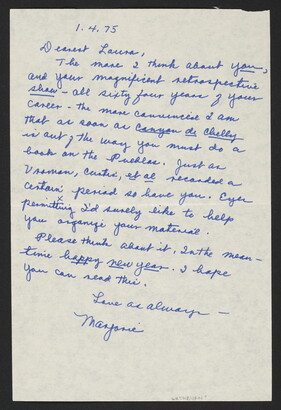 1.4.75
Dearest Laura,
The more I think about you,
and your magnificent retrospective
show - all sixty four years of your
career - the more convinced I am
that as soon as Canyon de Chelly
is out of the way you must do a
book on the Pueblos. Just as
Vroman, Curtis, et al recorded a
certain period so have you. Eyes
permitting I'd surely like to help
you organize your material.
Please think about it. In the mean-
time happy new year. I hope
you can read this.
Love as always -
Marjorie